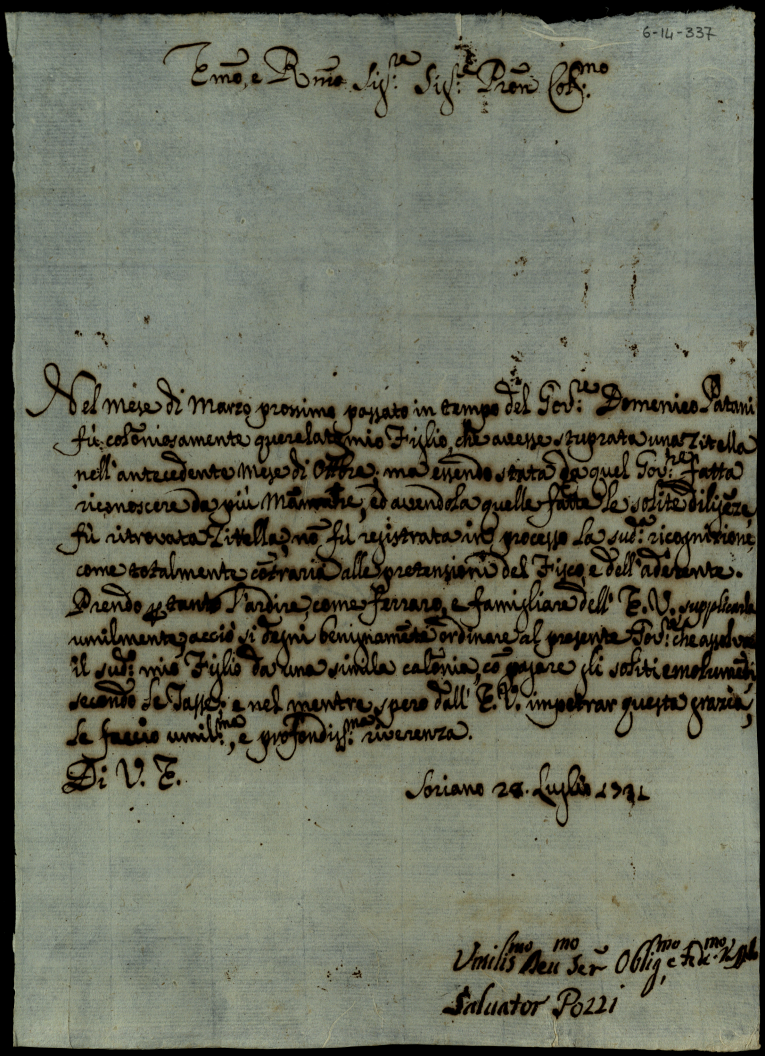 6-14-337
Emo, e Rmo Sig.re Sig.re Pron Col.mo
Nel mese di Marzo prossimo passato in tempo del Gov.re Domenico Patani
fù coloniosamente querelato mio Figlio, che avesse stuprata una Zitella
nell'antecedente mese di Ottbre; ma essendo stata da quel Gov.re fatta
riconoscere da più Mammane, ed avendola quelle fatte le solite diligeze,
fù ritrovata Zitella, nō fù registrata in processo la sud.a ricognitione,
come totalmente cōtraria alle pretensioni del Fisco, e dell'aderente.
Prendo p tanto l'ardire, come ferraro, e famigliare dell' E. V. supplicarla
umilmente, acciò si degni benignamēte ordinare al presente Gov.re che assolva
il sud.o mio Figlio da una simila calonia, cō pagare gli soliti emolumēti,
secondo le Tasse; e nel mentre spero dall' E. V. impetrar questa grazia,
le faccio umil.ma, e profondiss.ma riverenza.
Di V. E.
Soriano 28. Luglio
Umilis.mo Deu.mo Ser Oblig.mo e
Salvator Pozzi